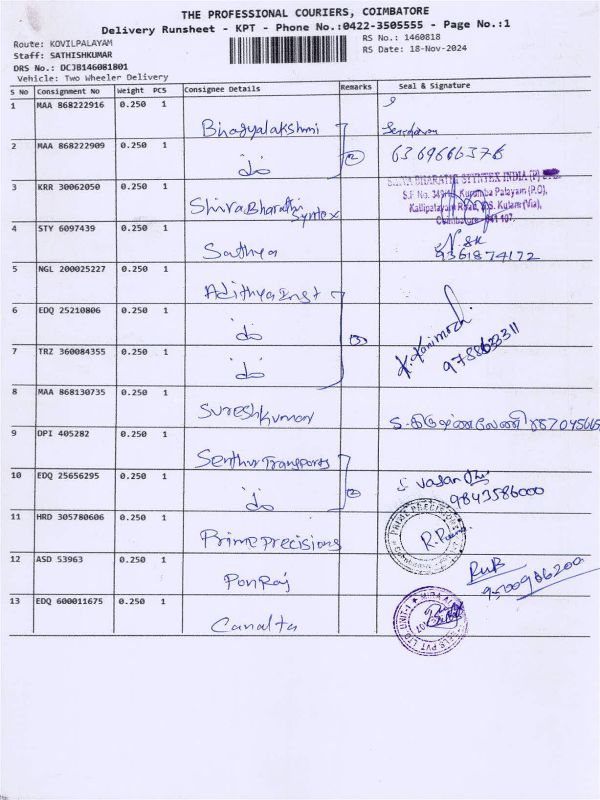 THE PROFESSIONAL COURIERS, COIMBATORE
Delivery Runsheet - KPT - Phone No.:0422-3505555 - Page No.:1
Route: KOVILPALAYAM
RS No.: 1460818
Staff: SATHISHKUMAR
RS Date: 18-Nov-2024
DRS No.: DCJB146081801
Vehicle: Two Wheeler Delivery
S No Consignment No Weight PCS Consignee Details Remarks Seal & Signature
1 MAA 868222916 0.250 1 Bhagyalakshmi
2 MAA 868222909 0.250 1 do 2 6369666376
3 KRR 30062050 0.250 1 Shiva Bharathi Syntex
SHIVA BHARATHI SYNTEX INDIA (P)
Kurumba Palayam (P.O),
Kallipalayam Road, S.S. Kulam (Via),
Coimbatore - 641 107.
4 STY 6097439 0.250 1 Sathya 9361874172
5 NGL 200025227 0.250 1 Adithya Inst
6 EDQ 25210806 0.250 1 do 3 K. Kanimozhi
7 TRZ 360084355 0.250 1 do
8 MAA 868130735 0.250 1 Sureshkumar
9 DPI 405282 0.250 1 Senthur Transports
10 EDQ 25656295 0.250 1 do 2 9843586000
11 HRD 305780606 0.250 1 Prime Precisions
12 ASD 53963 0.250 1 Ponraj
13 EDQ 600011675 0.250 1 Canalta